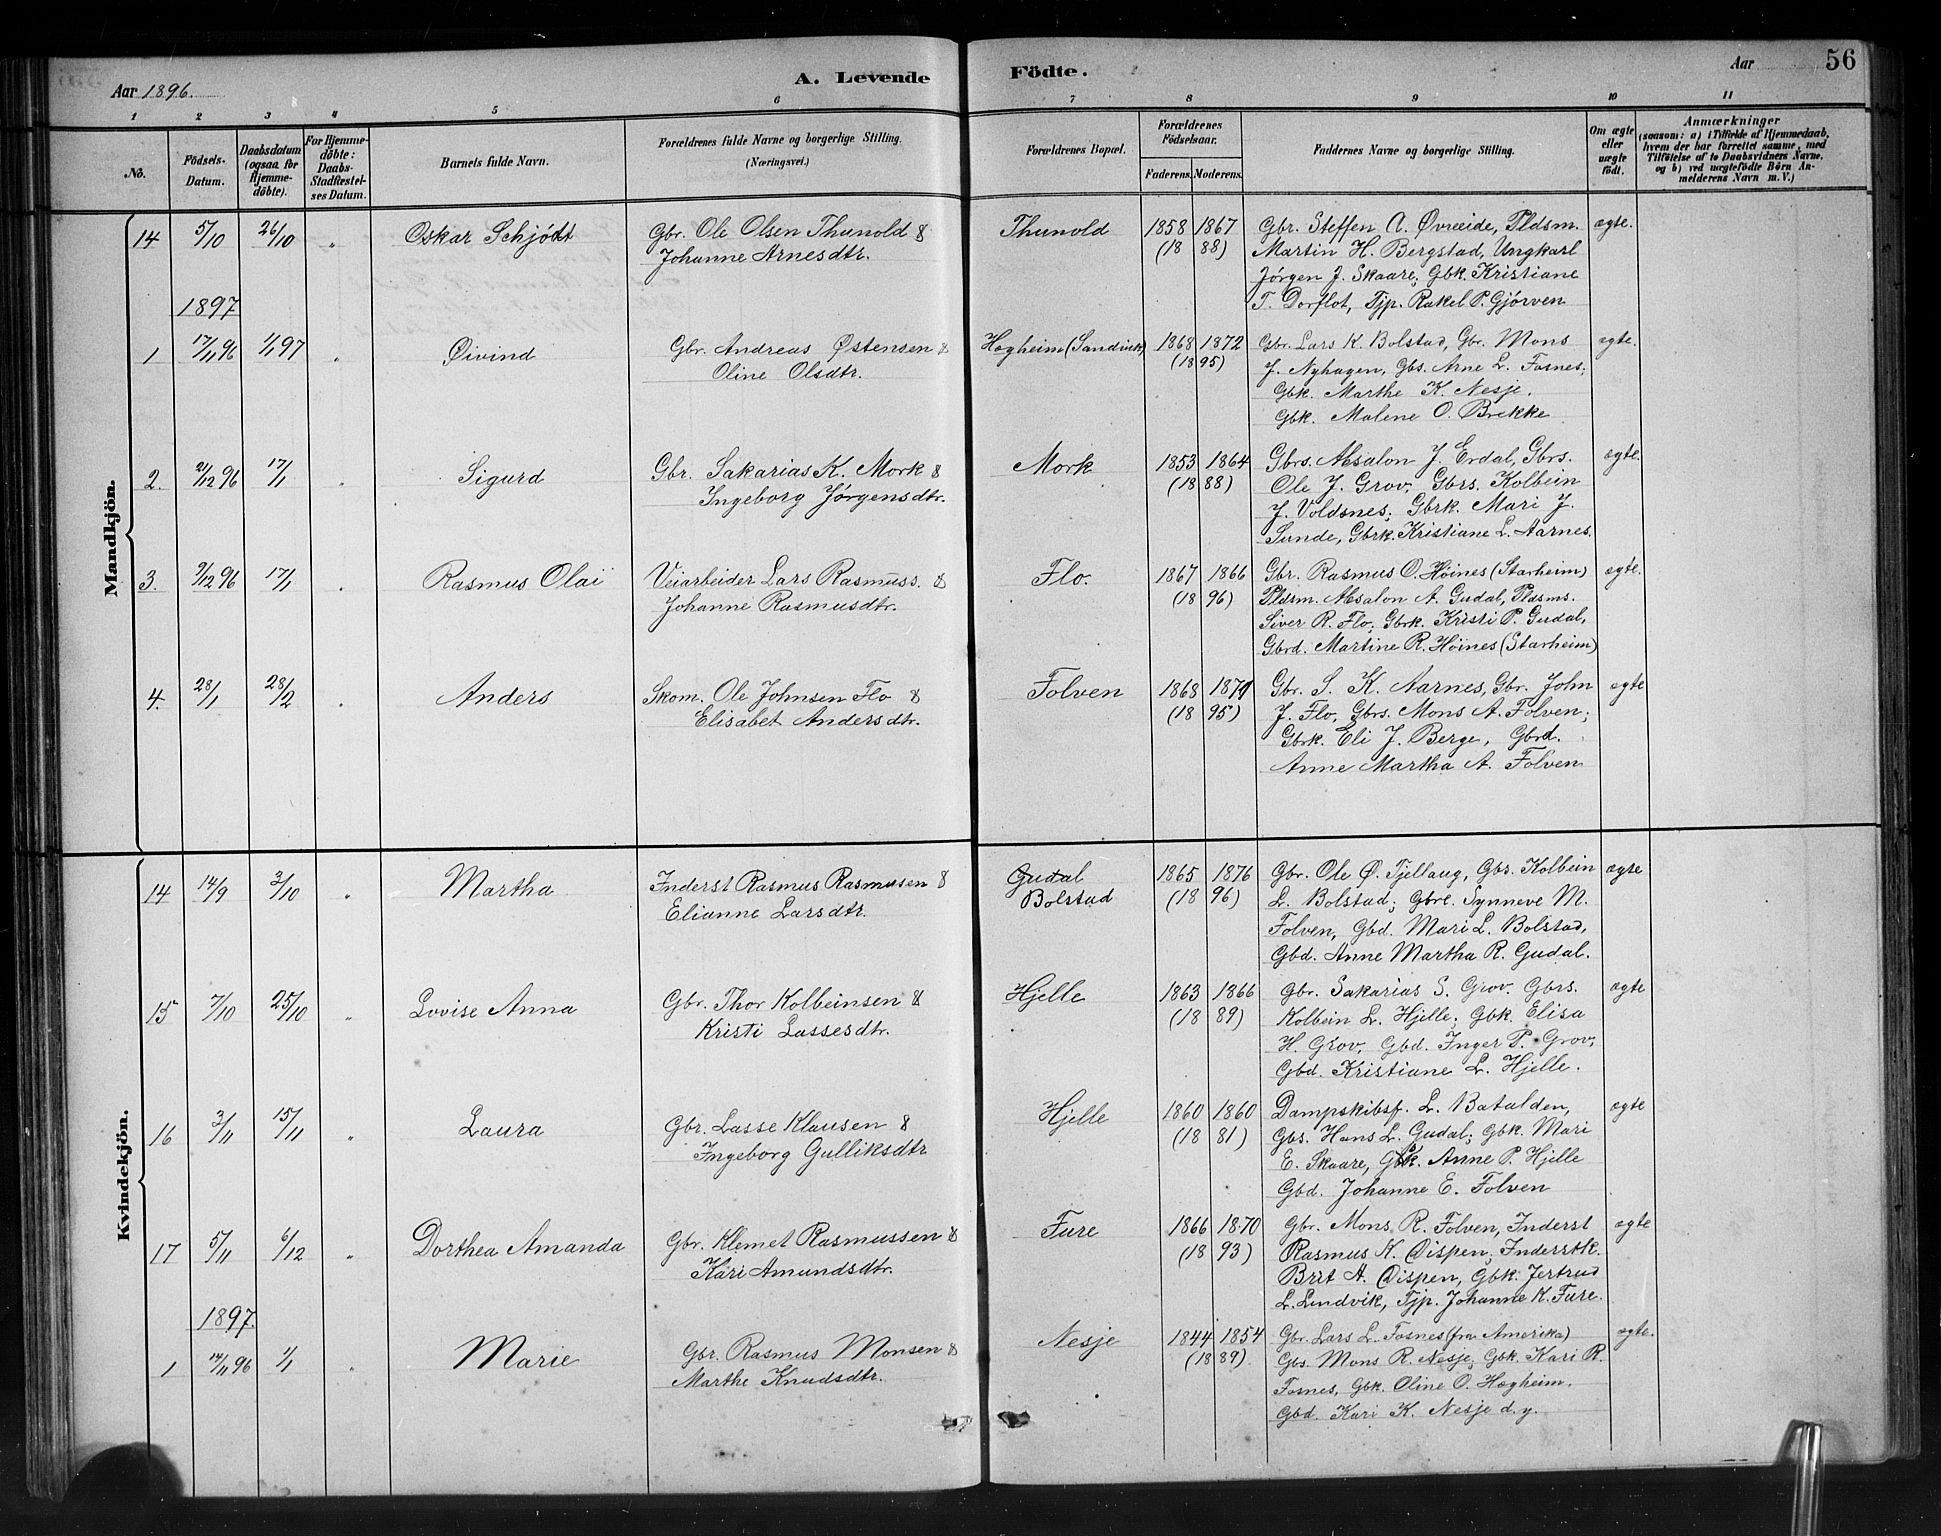 56
A. Levende Födte.
Aar 1896.
Aar
1 2 3 4 5 6 7 8 9 10 11
No.
Födsels-Datum.
Daabsdatum (ogsaa for Hjemmedöbte).
For Hjemmedöbte: Daabs-Stadfæstelses Datum.
Barnets fulde Navn.
Forældrenes fulde Navne og borgerlige Stilling. (Næringsvei.)
Forældrenes Bopæl.
Forældrenes Födselsaar.
Faderens. Moderens.
Faddernes Navne og borgerlige Stilling.
Om ægte eller uægte födt.
Anmærkninger
(saasom: a) i Tilfælde af Hjemmedaab, hvem der har forrettet samme, med Tilföielse af to Daabsvidners Navne, og b) ved uægtefödte Börn Anmelderens Navn m. V.)
Mandkjön.
14 5/10 26/10 " Oskar Schjödt Gbr. Ole Olsen Thunold & Thunold 1858 1867 Gbr. Steffen A. Øvreeide, Pldsm. ægte.
Johanne Arnesdtr. (18 88) Martin H. Bergstad, Ungkarl
Jørgen J. Skaare; Gbk. Kristiane
T. Dorflot, Tjp. Rakel P. Gjörven
1897
1 17/11 96 1/1 97 " Øivind Gbr. Andreas Østensen & Hægheim (Sandvik) 1868 1872 Gbr. Lars K. Bolstad, Gbr. Mons ægte.
Oline Olsdtr. (18 95) J. Nyhagen, Gbs. Arne L. Fosnes;
Gbk. Marthe K. Nesje.
Gbk. Malene O. Brekke
2. 21/12 96 17/1 " Sigurd Gbr. Sakarias K. Mork & Mork 1853 1864 Gbrs. Absalon J. Erdal, Gbrs. ægte.
Ingeborg Jørgensdtr. (18 88) Ole J. Grov, Gbrs. Kolbein
J. Voldsnes; Gbrk. Mari J.
Sunde, Gbrk. Kristiane L. Aarnes.
3. 9/12 96 17/1 " Rasmus Olai Veiarbeider Lars Rasmuss. & Flo. 1867 1866 Gbr. Rasmus O. Höines (Starheim) ægte.
Johanne Rasmusdtr. (18 96) Pldsm. Absalon A. Gudal, Pldsms.
Siver R. Flo; Gbrk. Kristi P. Gudal,
Gbrd. Martine R. Höines (Starheim)
4. 28/1 28/2 " Anders Skom. Ole Johnsen Flo & Folven 1868 1870 Gbr. S. K. Aarnes, Gbr. John ægte
Elisabet Andersdtr. (18 95) J. Flo, Gbrs. Mons A. Folven;
Gbrk. Eli J. Berge, Gbrd.
Anne Martha A. Folven
Kvindekjön.
14 14/9 3/10 " Martha Inderst Rasmus Rasmusen & Gudal 1865 1876 Gbr. Ole Ø. Tjellaug, Gbs. Kolbein ægte
Elianne Larsdtr. Bolstad (18 96) L. Bolstad; Gbre. Synneve M.
Folven, Gbd. Mari L. Bolstad,
Gbd. Anne Martha R. Gudal.
15 7/10 25/10 " Lovise Anna Gbr. Thor Kolbeinsen & Hjelle 1863 1866 Gbr. Sakarias S. Grov. Gbrs. ægte
Kristi Lassesdtr. (18 89) Kolbein L. Hjelle; Gbk. Elisa
H. Grov, Gbd. Inger P. Grov,
Gbd. Kristiane L. Hjelle.
16 3/11 15/11 " Laura Gbr. Lasse Klausen & Hjelle 1860 1860 Dampskibsf. L. Batalden, ægte
Ingeborg Gulliksdtr (18 81) Gbs. Hans L. Gudal; Gbk. Mari
E. Skaare, Gbk. Anne P. Hjelle
Gbd. Johanne E. Folven
17 5/11 6/12 " Dorthea Amanda Gbr. Klemet Rasmussen & Fure 1866 1870 Gbr. Mons R. Folven, Inderst ægte
Kari Amundsdtr. (18 93) Rasmus K. Dispen; Inderstk.
Brit A. Dispen, Gbk. Jertrud
L. Lundvik, Tjp. Johanne K. Fure.
1897.
1 14/11 96 1/1 " Marie Gbr. Rasmus Monsen & Nesje 1844 1854 Gbr. Lars L. Fosnes (fra Amerika) ægte.
Marthe Knudsdtr. (18 89) Gbs Mons R. Nesje; Gbk. Kari R.
Fosnes, Gbk. Oline O. Hægheim.
Gbd. Kari K. Nesje d. y.